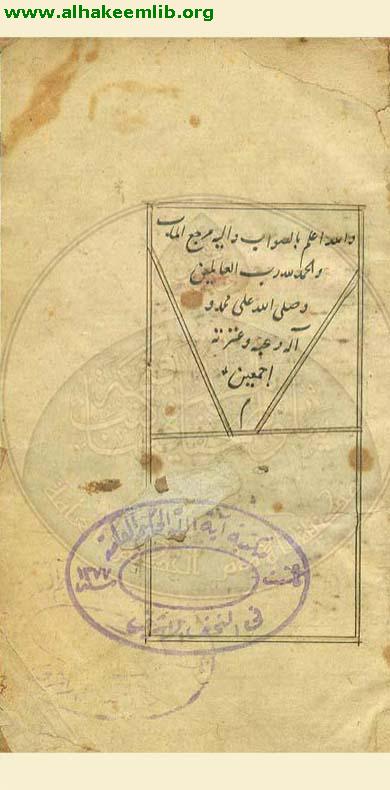 www.alhakeemlib.org
والله اعلم بالصواب واليه مرجع المآب
والحمد لله رب العالمين
وصلى الله على محمد و
آله وصحبه وعترته
اجمعين
م
مكتبة آية الله الحكيم العامة
سنة ١٣٧٧
في النجف الاشرف